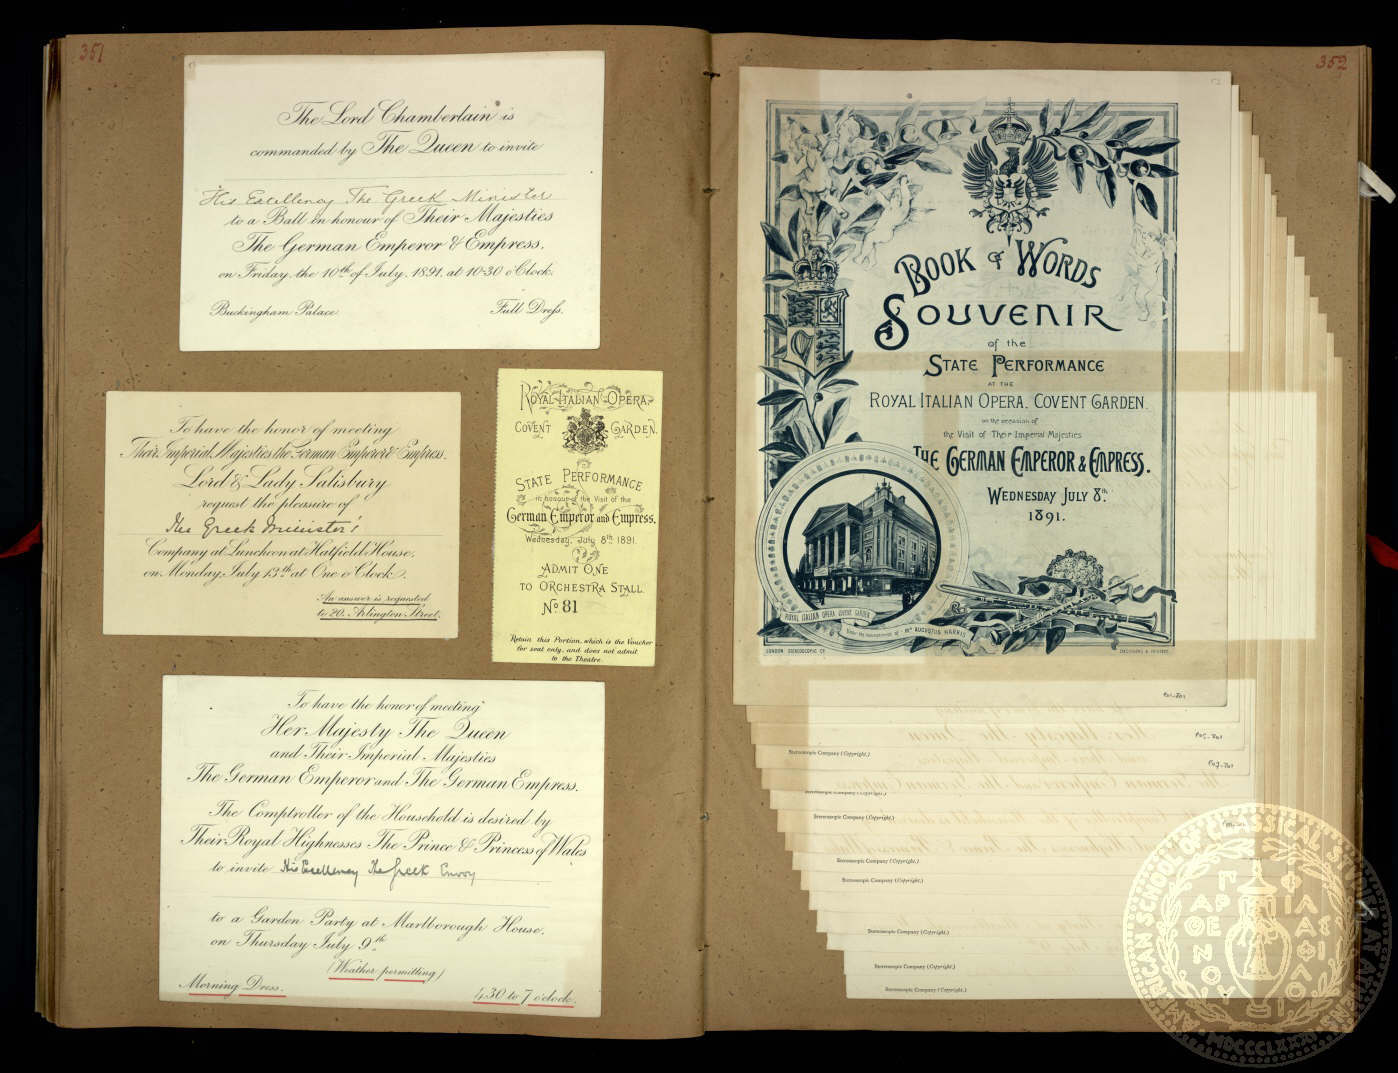 351
The Lord Chamberlain is
commanded by The Queen to invite
His Excellency The Greek Minister
to a Ball in honour of Their Majesties
The German Emperor & Empress,
on Friday, the 10th of July, 1891, at 10-30 o'Clock.
Buckingham Palace
Full Dress.
To have the honor of meeting
Their Imperial Majesties the German Emperor & Empress.
Lord & Lady Salisbury
request the pleasure of
The Greek Minister's
Company at Luncheon at Hatfield House,
on Monday, July 13th at One o'Clock.
An answer is requested
to 20, Arlington Street.
ROYAL ITALIAN OPERA
COVENT GARDEN.
STATE PERFORMANCE
in honour of the Visit of the
German Emperor and Empress.
Wednesday, July 8th 1891.
ADMIT ONE
TO ORCHESTRA STALL
No 81
Retain this Portion, which is the Voucher
for seat only, and does not admit
to the Theatre.
To have the honor of meeting
Her Majesty The Queen
and Their Imperial Majesties
The German Emperor and The German Empress.
The Comptroller of the Household is desired by
Their Royal Highnesses The Prince & Princess of Wales
to invite His Excellency The Greek Envoy
to a Garden Party at Marlborough House,
on Thursday July 9th
(Weather permitting)
Morning Dress.
4.30 to 7 o'clock.
352
BOOK OF WORDS
SOUVENIR
of the
STATE PERFORMANCE
AT THE
ROYAL ITALIAN OPERA, COVENT GARDEN.
on the occasion of
the Visit of Their Imperial Majesties
THE GERMAN EMPEROR & EMPRESS.
WEDNESDAY JULY 8th
1891.
ROYAL ITALIAN OPERA COVENT GARDEN
Under the management of Mr AUGUSTUS HARRIS
LONDON STEREOSCOPIC Co
Stereoscopic Company (Copyright.)
Stereoscopic Company (Copyright.)
Stereoscopic Company (Copyright.)
Stereoscopic Company (Copyright.)
Stereoscopic Company (Copyright.)
Stereoscopic Company (Copyright.)
Stereoscopic Company (Copyright.)
Stereoscopic Company (Copyright.)
AMERICAN SCHOOL OF CLASSICAL STUDIES AT ATHENS
ΠΑΡΘΕΝΟΥ ΦΙΛΑΣ ΦΙΛΟΣ